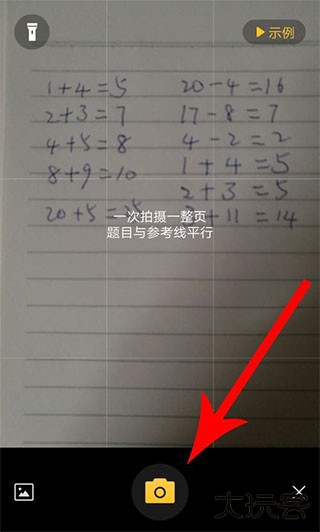 示例
1+4=5 20-4=16
2+3=7 17-8=7
4+5=8 4-2=2
8+9=10 1+4=5
2+3=5
20+5=25 +11=14
一次拍摄一整页
题目与参考线平行
大玩客